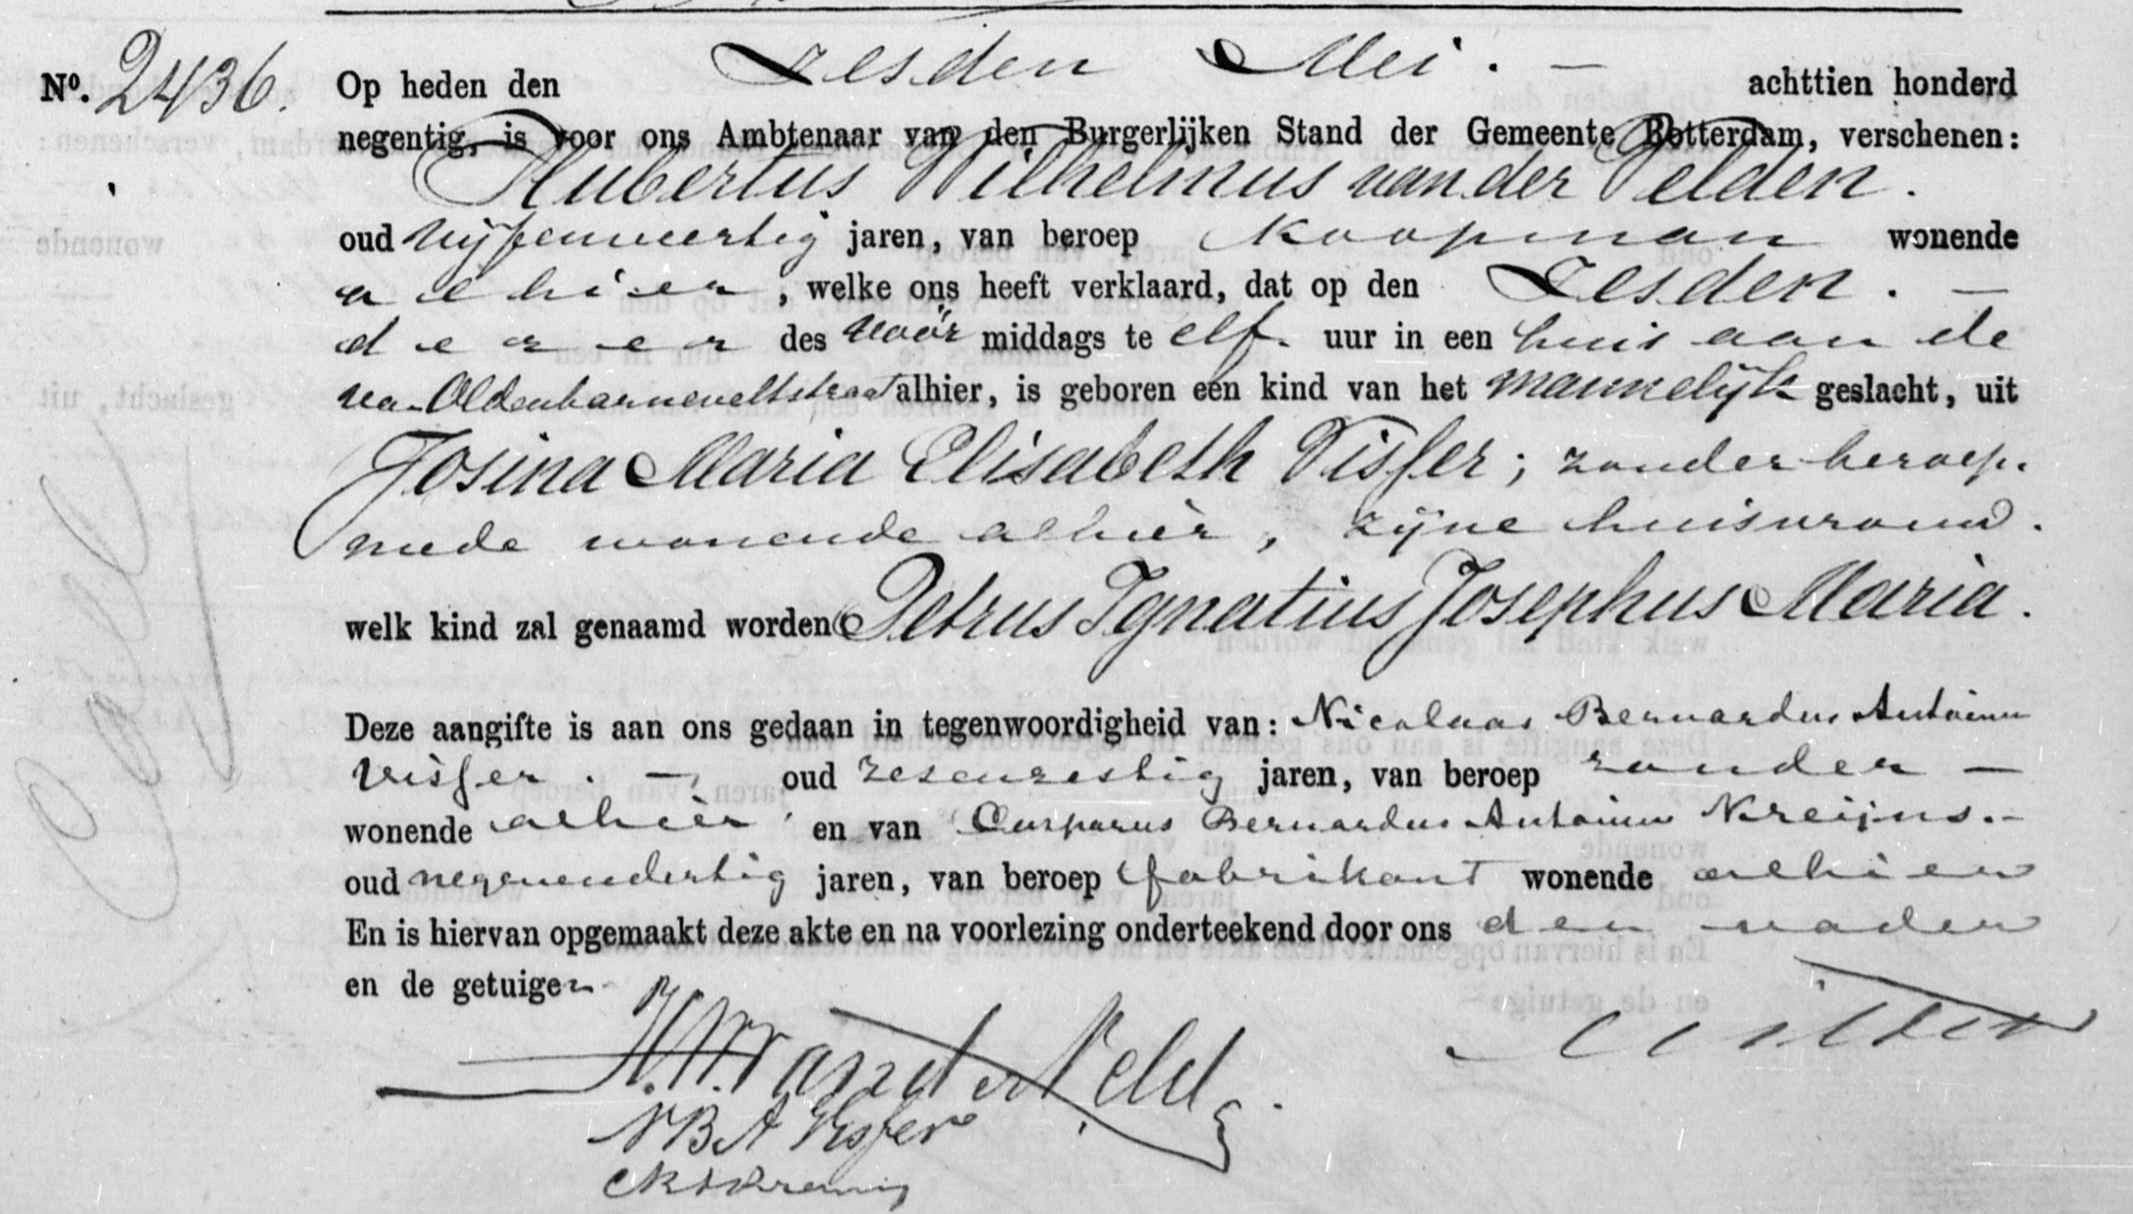 Nº. 2436. Op heden den Zesden Mei. — achttien honderd
negentig, is voor ons Ambtenaar van den Burgerlijken Stand der Gemeente Rotterdam, verschenen:
Hubertus Wilhelmus van der Velden.
oud vijfenveertig jaren, van beroep Koopman wonende
alhier, welke ons heeft verklaard, dat op den Zesden. —
dezer des voor middags te elf. uur in een huis aan de
van Oldenbarneveltstraat alhier, is geboren een kind van het mannelijk geslacht, uit
Josina Maria Elisabeth Visser; zonder beroep.
mede wonende alhier, zijne huisvrouw.
welk kind zal genaamd worden Petrus Ignatius Josephus Maria.
Deze aangifte is aan ons gedaan in tegenwoordigheid van: Nicolaas Bernardus Antonius
Visser. — oud zesenzestig jaren, van beroep zonder —
wonende alhier en van Casparus Bernardus Antonius Kreijns. —
oud negenendertig jaren, van beroep fabrikant wonende alhier
En is hiervan opgemaakt deze akte en na voorlezing onderteekend door ons den vader
en de getuigen
H.W. van der Velden
NBA Visser